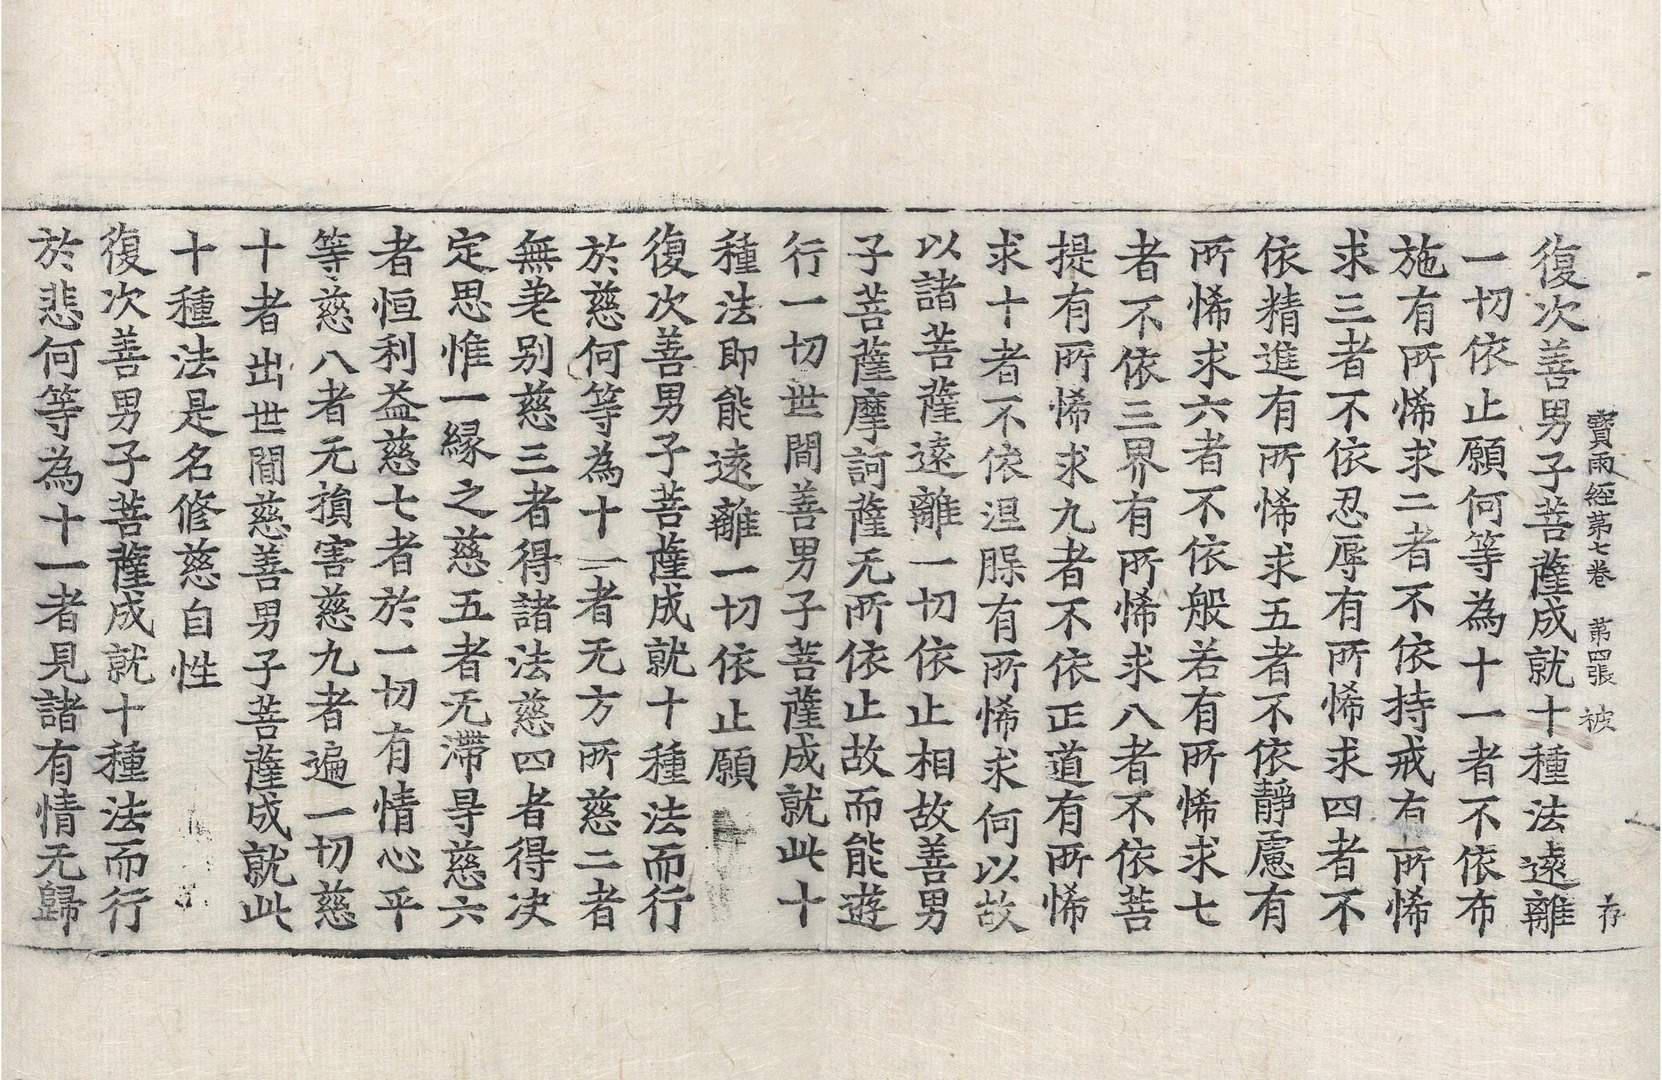 寶雨經苐七卷　苐四張　被　存
復次善男子菩薩成就十種法遠離
一切依止願何等為十一者不依布
施有所悕求二者不依持戒有所悕
求三者不依忍辱有所悕求四者不
依精進有所悕求五者不依靜慮有
所悕求六者不依般若有所悕求七
者不依三界有所悕求八者不依菩
提有所悕求九者不依正道有所悕
求十者不依涅槃有所悕求何以故
以諸菩薩遠離一切依止相故善男
子菩薩摩訶薩无所依止故而能遊
行一切世間善男子菩薩成就此十
種法即能遠離一切依止願
復次善男子菩薩成就十種法而行
於慈何等為十一者无方所慈二者
無差別慈三者得諸法慈四者得決
定思惟一縁之慈五者无滯㝵慈六
者恒利益慈七者於一切有情心平
等慈八者无損害慈九者遍一切慈
十者出世間慈善男子菩薩成就此
十種法是名修慈自性
復次善男子菩薩成就十種法而行
於悲何等為十一者見諸有情无歸